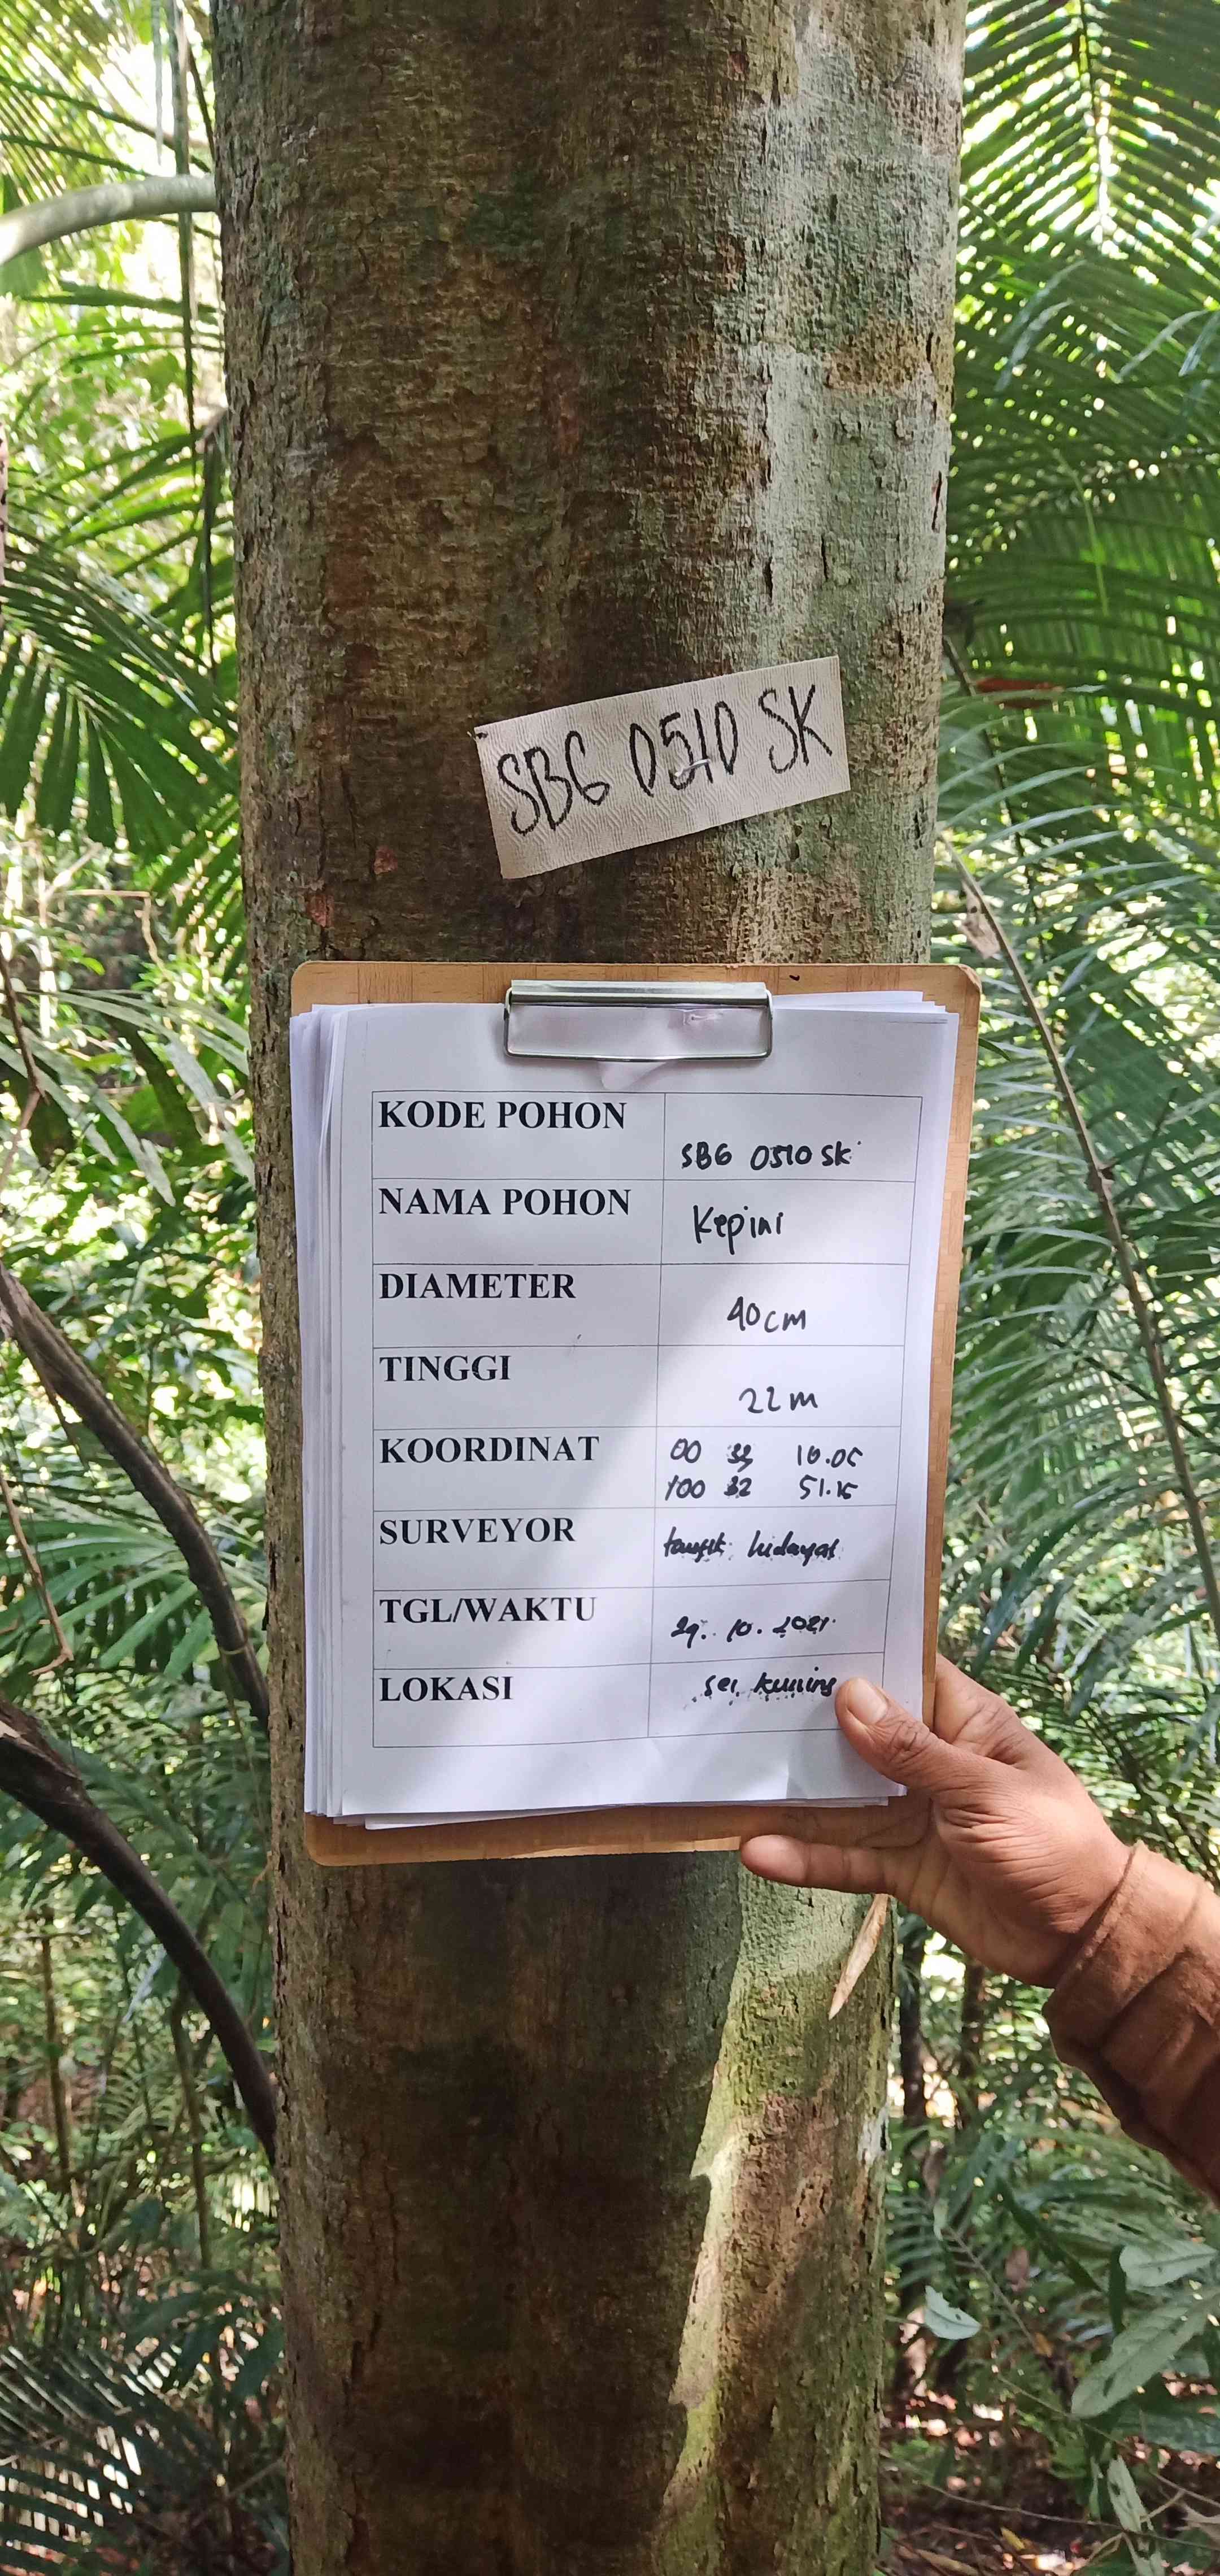 SBG 0510 SK
KODE POHON SBG 0510 SK
NAMA POHON Kepini
DIAMETER 40 cm
TINGGI 22 m
KOORDINAT 00 33
100 32 51.15
SURVEYOR taufik hidayat
TGL/WAKTU 29. 10. 2021
LOKASI sei kuning